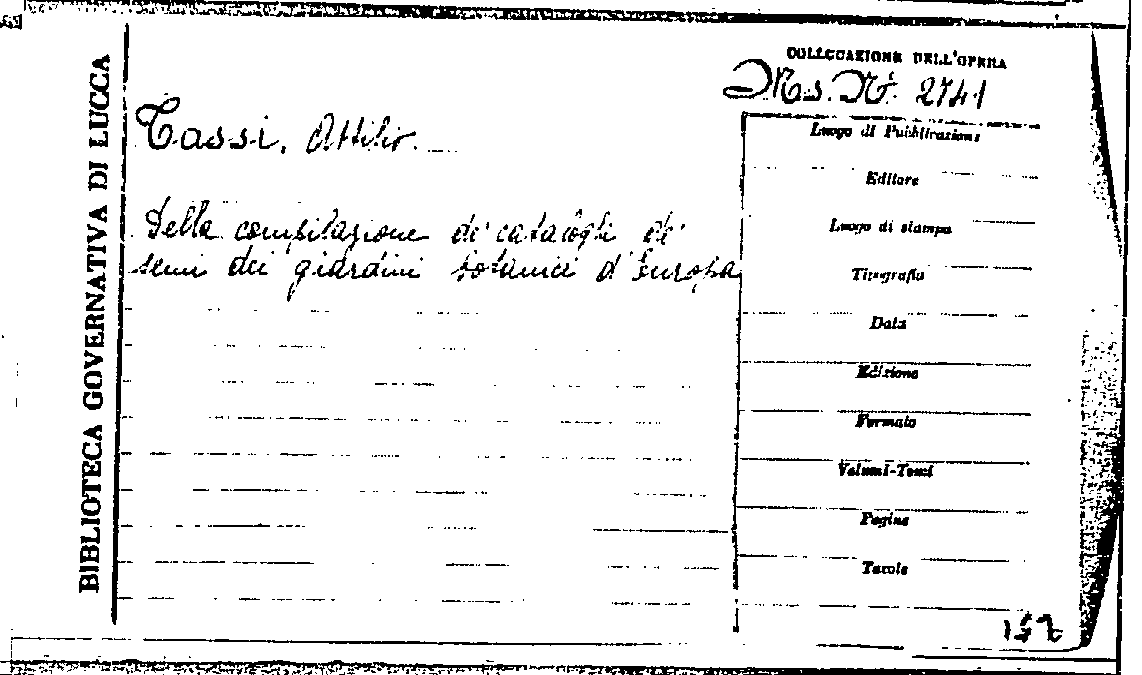 BIBLIOTECA GOVERNATIVA DI LUCCA
COLLOCAZIONE DELL'OPERA
Ms. N. 2741
Tassi, Attilio.
Della compilazione de' cataloghi de'
semi dei giardini botanici d'Europa
Luogo di Pubblicazione
Editore
Luogo di stampa
Tipografia
Data
Edizione
Formato
Volumi-Tomi
Pagine
Tavole